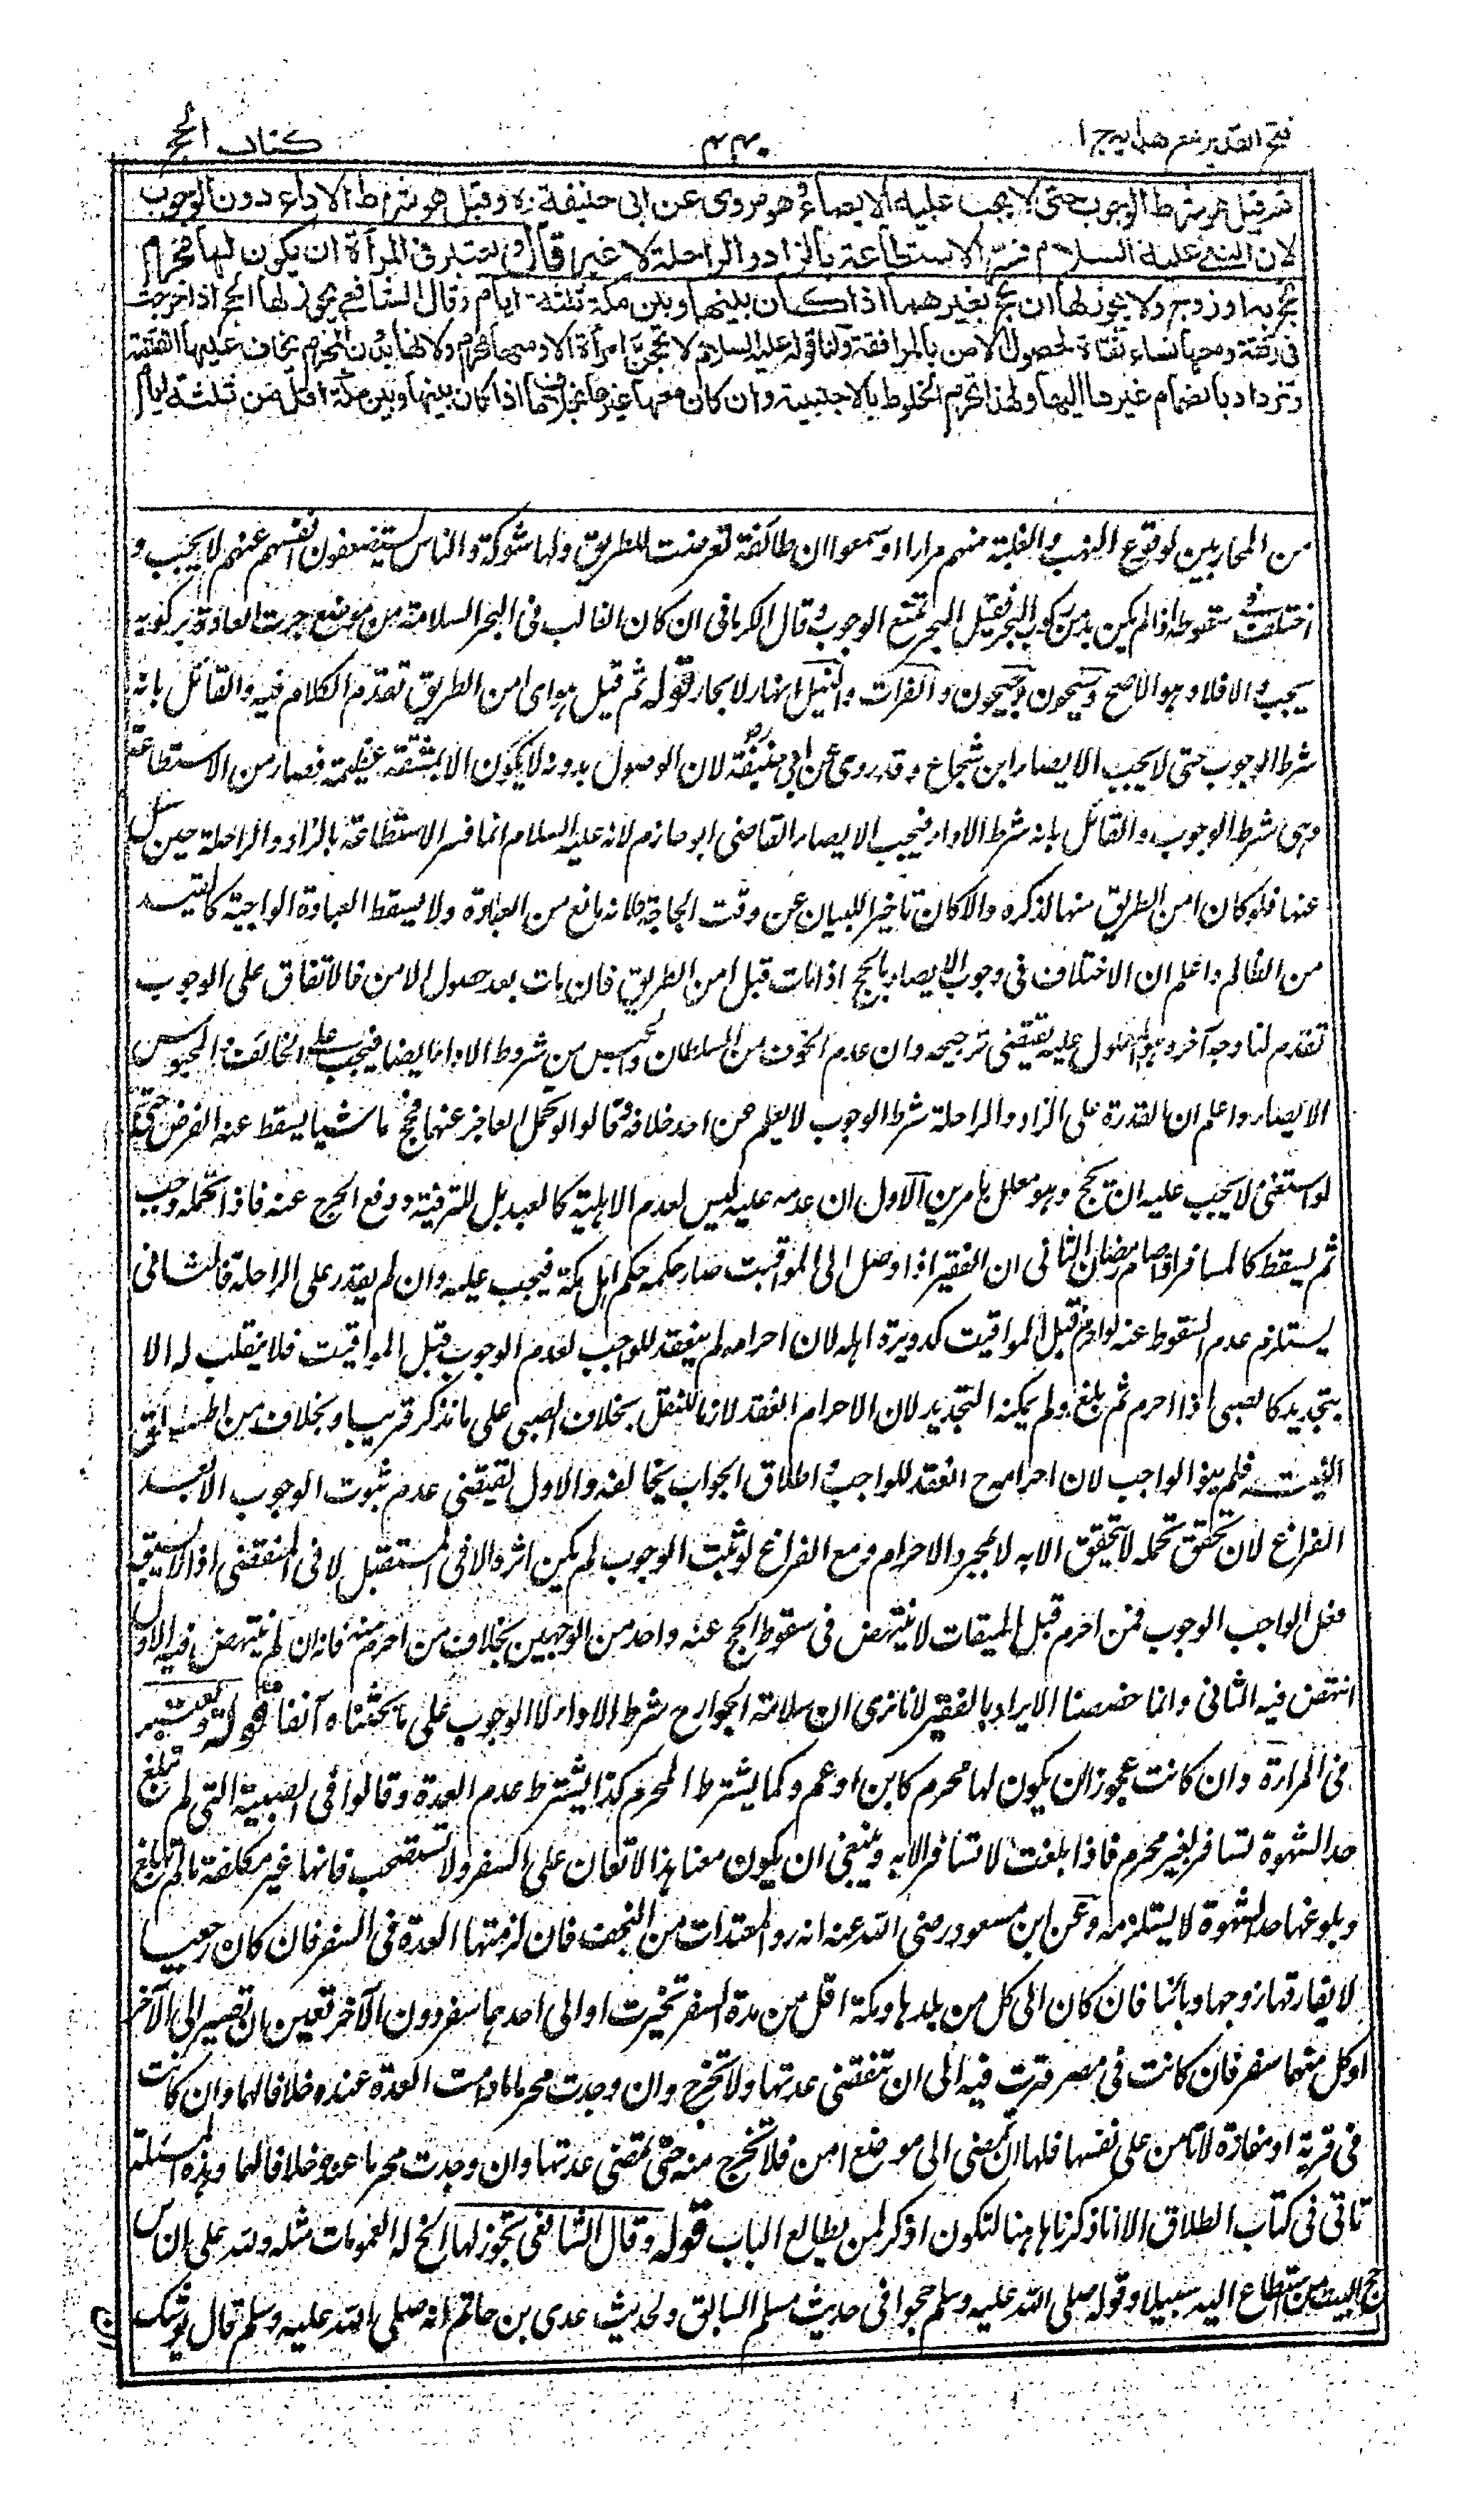 فتح القدير مع هدايه ج ١
٤٣٠
كتاب الحج
ثم قيل هو شرط الوجوب حتى لا يجب عليه الايصاء وهو مروى عن ابى حنيفة ره وقيل هو شرط الاداء دون الوجوب
لان النبي عليه السلام فسر الاستطاعة بالزاد والراحلة لا غير قال ويعتبر فى المرأة ان يكون لها محرم
تحج به او زوج ولا يجوز لها ان تحج بغيرهما اذا كان بينها وبين مكة ثلثة ايام وقال الشافعي يجوز لها الحج اذا خرجت
فى رفقة ومعها نساء ثقاة لحصول الامن بالمرافقة ولنا قوله عليه السلام لا تحجن امرأة الا ومعها محرم ولانها بدون المحرم يخاف عليها الفتنة
وتزداد بانضمام غيرها اليها ولهذا تحرم الخلوة بالاجنبية وان كان معها غيرها بخلاف ما اذا كان بينها وبين مكة اقل من ثلثة ايام
من المحاربين لوقوع النهب والغلبة منهم مرارا او سمعوا ان طائفة تعرضت للطريق ولها شوكة والناس يستضعفون انفسهم عنهم لا يجب و
اختلف فى سقوطه اذا لم يكن بد من ركوب البحر فقيل البحر يمنع الوجوب وقال الكرمانى ان كان الغالب فى البحر السلامة من موضع جرت العادة بركوبه
يجب والا فلا وهو الاصح وسيحون وجيحون والفرات والنيل انهار لا بحار قوله ثم قيل هو اى امن الطريق تقدم الكلام فيه والقائل بانه
شرط الوجوب حتى لا يجب الايصاء ابن شجاع وقد روى عن ابى حنيفة رح لان الوصول بدونه لا يكون الا بمشقة عظيمة فصار من الاستطاعة
وهى شرط الوجوب والقائل بانه شرط الاداء فيجب الايصاء القاضى ابو حازم لانه عليه السلام انما فسر الاستطاعة بالزاد والراحلة حين سئل
عنها فلو كان امن الطريق منها لذكره والا كان تاخير للبيان عن وقت الحاجة ولانه مانع من العبادة ولا يسقط العبادة الواجبة كالقيد
من الظالم واعلم ان الاختلاف فى وجوب الايصاء بالحج اذا مات قبل امن الطريق فان مات بعد حصول الامن فالاتفاق على الوجوب
تقدم لنا وجه آخر وهو المعول عليه يقتضى ترجيحه وان عدم الخوف من السلطان والحبس من شروط الاداء ايضا فيجب على الخائف والمحبوس
الايصاء واعلم ان القدرة على الزاد والراحلة شرط الوجوب لا يعلم عن احد خلافه فقالوا لو تحمل العاجز عنها فحج ماشيا يسقط عنه الفرض حتى
لو استغنى لا يجب عليه ان يحج وهو معلل بامرين الاول ان عدمه عليه ليس لعدم الاهلية كالعبد بل للترفية ودفع الحرج عنه فاذا تحمله وجب
ثم يسقط كالمسافر اذا صام رمضان الثانى ان الفقير اذا وصل الى المواقيت صار حكمه حكم اهل مكة فيجب عليه وان لم يقدر على الراحلة فالثانى
يستلزم عدم السقوط عنه لو احرم قبل المواقيت كدويرة اهله لان احرامه لم ينعقد للواجب لعدم الوجوب قبل المواقيت فلا ينقلب له الا
بتجديد كالصبى اذا احرم ثم بلغ ولم يمكنه التجديد لان الاحرام انعقد لازما للنفل بخلاف الصبى على ما نذكر قريبا وبخلاف من اطلق
النية فلم ينو الواجب لان احرامه ح انعقد للواجب واطلاق الجواب يخالفه والاول يقتضى عدم ثبوت الوجوب الا بعد
الفراغ لان تحقق تحمله لا يتحقق الا به لا بمجرد الاحرام ومع الفراغ لو ثبت الوجوب لم يكن اثره الا فى المستقبل لا فى المنقضى اذ لا يسبق
فعل الواجب الوجوب فمن احرم قبل الميقات لا ينتهض فى سقوط الحج عنه واحد من الوجهين بخلاف من احرم منه فانه ان لم ينتهض فيه الاول
انتهض فيه الثانى وانما خصصنا الايراد بالفقير لانا نرى ان سلامة الجوارح شرط الاداء لا الوجوب على ما بحثناه آنفا قوله ويعتبر
فى المرأة وان كانت عجوزا ان يكون لها محرم كابن او عم وكما يشترط المحرم كذا يشترط عدم العدة وقالوا فى الصبية التى لم تبلغ
حد الشهوة تسافر بغير محرم فاذا بلغت لا تسافر الا به وينبغى ان يكون معناه هذا الاتعان على السفر ولا تستصحب فانها غير مكلفة ما لم تبلغ
وبلوغها حد الشهوة لا يستلزمه وعن ابن مسعود رضى الله عنه انه رد المعتدات من النجف فان لزمتها العدة فى السفر فان كان رجعيا
لا يفارقها زوجها او بائنا فان كان الى كل من بلدها ومكة اقل من مدة السفر تخيرت او الى احدهما سفر دون الآخر تعين ان تصير الى الآخر
او كل منهما سفر فان كانت فى مصر قرت فيه الى ان تنقضى عدتها ولا تخرج وان وجدت محرما ما دامت العدة عنده خلافا لهما وان كانت
فى قرية او مفازة لا تامن على نفسها فلها ان تمضى الى موضع امن فلا تخرج منه حتى تمضى عدتها وان وجدت محرما عنده خلافا لهما وهذه المسئلة
تاتى فى كتاب الطلاق الا انا ذكرناها هنا لتكون اذكر لمن يطالع الباب قوله وقال الشافعى يجوز لها الحج له العمومات مثله ولله على الناس
حج البيت من استطاع اليه سبيلا وقوله صلى الله عليه وسلم حجوا فى حديث مسلم السابق ولحديث عدى بن حاتم انه صلى الله عليه وسلم قال يوشك